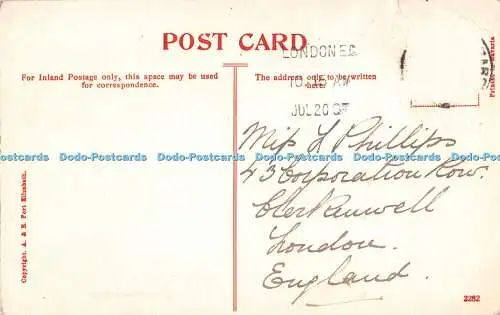 POST CARD
LONDON E.C
JUL 20 07
For Inland Postage only, this space may be used
for correspondence.
The address only to be written
here.
Printed in Bavaria
Miss L Phillips
Dodo-Postcards Dodo-Postcards Dodo-Postcards Dodo-Postcards Dodo-Postcards
43 Corporation Row.
Clerkenwell
London.
England.
Copyright. A. & R. Port Elizabeth.
2282